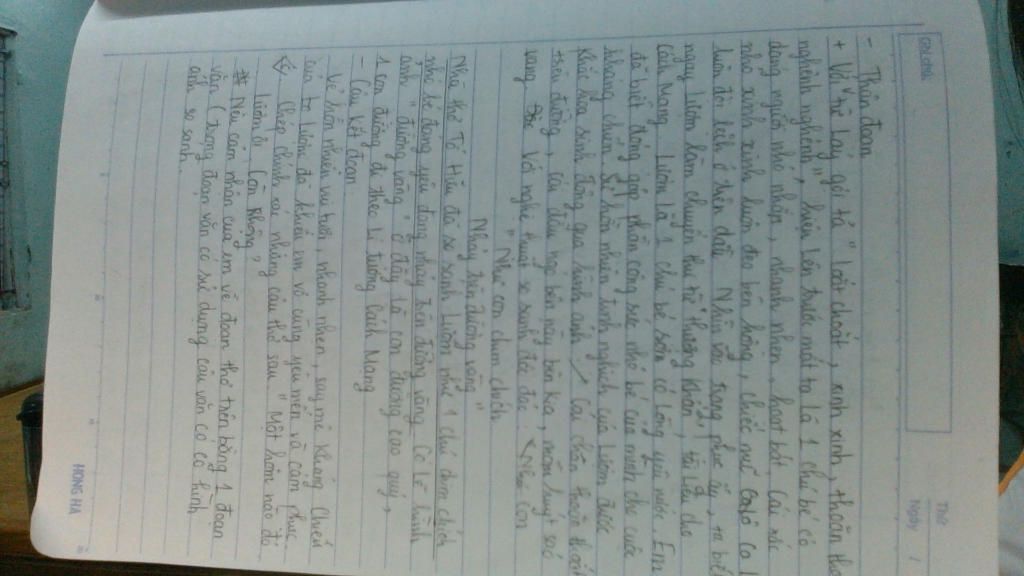 Ghi chú
Thứ
Ngày /
- Thân đoạn
+ Với từ láy gợi tả "loắt choắt, xinh xinh, thoăn
nghênh nghênh", hiện lên trước mắt ta là 1 chú bé có
dáng người nhỏ nhắn, nhanh nhẹn, hoạt bát. Cái xắc
nhỏ xinh xinh luôn đeo bên hông, chiếc mũ ca
luôn đội lệch ở trên đầu. Nhìn vào trang phục ấy, ta biết
ngay Lượm làm chuyển thư từ "thượng khẩn", tài liệu cho
cách Mạng. Lượm là 1 chú bé sớm có lòng yêu nước. Em
đã biết đóng góp phần công sức nhỏ bé của mình cho cuộc
kháng chiến. Sự hồn nhiên tinh nghịch của Lượm được
khắc họa sinh động qua hình ảnh / Cái chân thoăn thoắt
, cái đầu ngó bên này bên kia, mồm huýt sáo
vang. Với nghệ thuật so sánh độc đáo: con
"Như con chim chích
Nhảy trên đường vàng"
Nhà thơ Tố Hữu đã so sánh Lượm như 1 chú chim chích
nhỏ bé đáng yêu đang nhảy trên đường vàng. Có lẽ hình
ảnh "đường vàng" ở đây là con đường cao quý,
1 con đường đi theo lí tưởng Cách Mạng
- Câu kết đoạn:
Vẻ hồn nhiên vui tươi, nhanh nhẹn, say mê kháng chiến
của Lượm đã khiến em vô cùng yêu mến và cảm phục
Chép chính xác những câu thơ sau "Một hôm nào đó
Lượm ơi, còn không"
# Nêu cảm nhận của em về đoạn thơ trên bằng 1 đoạn
văn (trong đoạn văn có sử dụng câu văn có hình
ảnh so sánh.
HONG HA